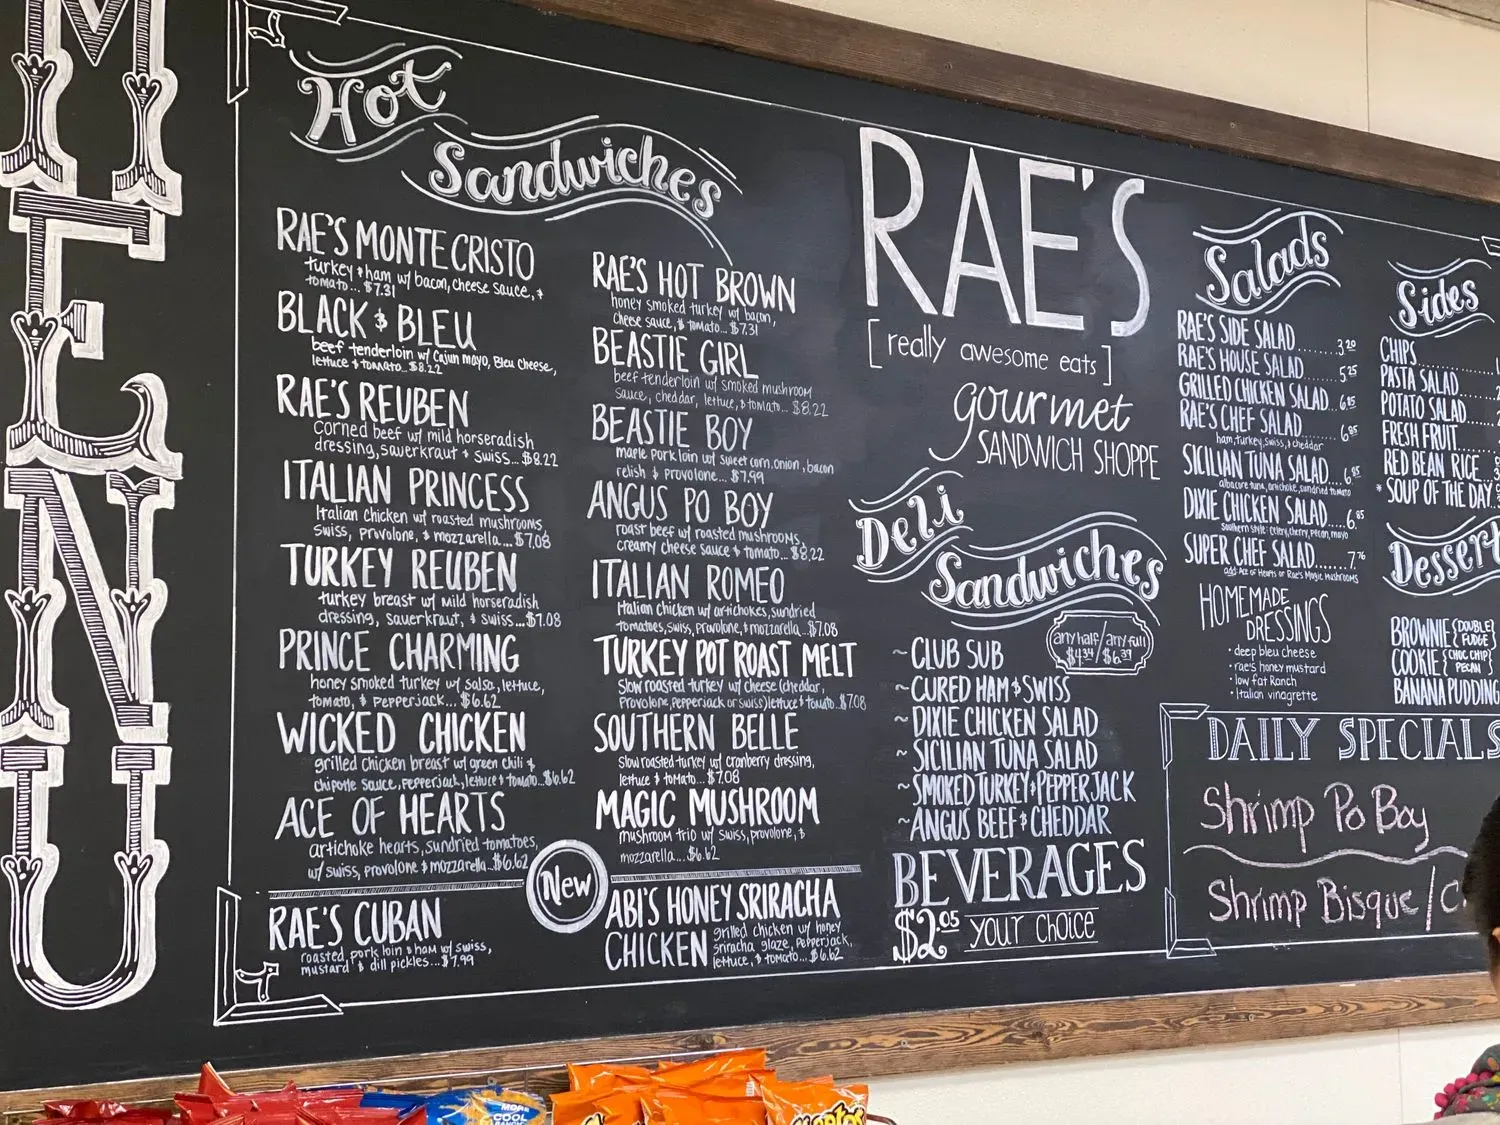 MENU
Hot
Sandwiches
RAE'S MONTE CRISTO
turkey & ham w/ bacon, cheese sauce, &
tomato... $7.31
BLACK & BLEU
beef tenderloin w/ Cajun mayo, Bleu Cheese,
lettuce & tomato... $8.22
RAE'S REUBEN
Corned beef w/ mild horseradish
dressing, sauerkraut & swiss... $8.22
ITALIAN PRINCESS
Italian chicken w/ roasted mushrooms,
Swiss, provolone, & mozzarella.... $7.08
TURKEY REUBEN
turkey breast w/ mild horseradish
dressing, sauerkraut, & swiss... $7.08
PRINCE CHARMING
honey smoked turkey w/ salsa, lettuce,
tomato, & pepperjack... $6.62
WICKED CHICKEN
grilled chicken breast w/ green chili &
chipotle sauce, pepperjack, lettuce & tomato... $6.62
ACE OF HEARTS
artichoke hearts, sundried tomatoes,
w/ swiss, provolone & mozzarella... $6.62
New
RAE'S CUBAN
roasted pork loin & ham w/ swiss,
mustard & dill pickles... $7.99
RAE'S HOT BROWN
honey smoked turkey w/ bacon,
cheese sauce, & tomato... $7.31
BEASTIE GIRL
beef tenderloin w/ smoked mushroom
sauce, cheddar, lettuce, & tomato... $8.22
BEASTIE BOY
maple pork loin w/ sweet corn, onion, bacon
relish & provolone... $7.99
ANGUS PO BOY
roast beef w/ roasted mushrooms,
creamy cheese sauce & tomato... $8.22
ITALIAN ROMEO
Italian chicken w/ artichokes, sundried
tomatoes, swiss, provolone, & mozzarella... $7.08
TURKEY POT ROAST MELT
Slow roasted turkey w/ cheese (cheddar,
Provolone, pepperjack or swiss) lettuce & tomato... $7.08
SOUTHERN BELLE
slow roasted turkey w/ cranberry dressing,
lettuce & tomato... $7.08
MAGIC MUSHROOM
mushroom trio w/ swiss, provolone, &
mozzarella... $6.62
ABI'S HONEY SRIRACHA
CHICKEN
grilled chicken w/ honey
sriracha glaze, pepperjack,
lettuce, & tomato... $6.62
RAE'S
[really awesome eats]
gourmet
SANDWICH SHOPPE
Deli
Sandwiches
any half / any full
$4.34 / $6.39
~ CLUB SUB
~ CURED HAM & SWISS
~ DIXIE CHICKEN SALAD
~ SICILIAN TUNA SALAD
~ SMOKED TURKEY & PEPPER JACK
~ ANGUS BEEF & CHEDDAR
BEVERAGES
$2.05 your choice
Salads
RAE'S SIDE SALAD........3.20
RAE'S HOUSE SALAD 5.25
GRILLED CHICKEN SALAD...6.85
RAE'S CHEF SALAD ....... 6.85
ham, turkey, swiss, & cheddar
SICILIAN TUNA SALAD ..6.85
albacore tuna, artichoke, sundried tomato
DIXIE CHICKEN SALAD....6.85
Southern style: celery, cherry, pecan, mayo
SUPER CHEF SALAD.......7.76
add: Ace of Hearts or Rae's Magic Mushrooms
HOMEMADE
DRESSINGS
• deep bleu cheese
• rae's honey mustard
• low fat Ranch
• Italian vinagrette
Sides
CHIPS
PASTA SALAD
POTATO SALAD
FRESH FRUIT
RED BEAN RICE
* SOUP OF THE DAY
Dessert
BROWNIE {DOUBLE FUDGE}
COOKIE {CHOC CHIP PECAN}
BANANA PUDDING
DAILY SPECIALS
Shrimp Po Boy
Shrimp Bisque /
MORE
COOL